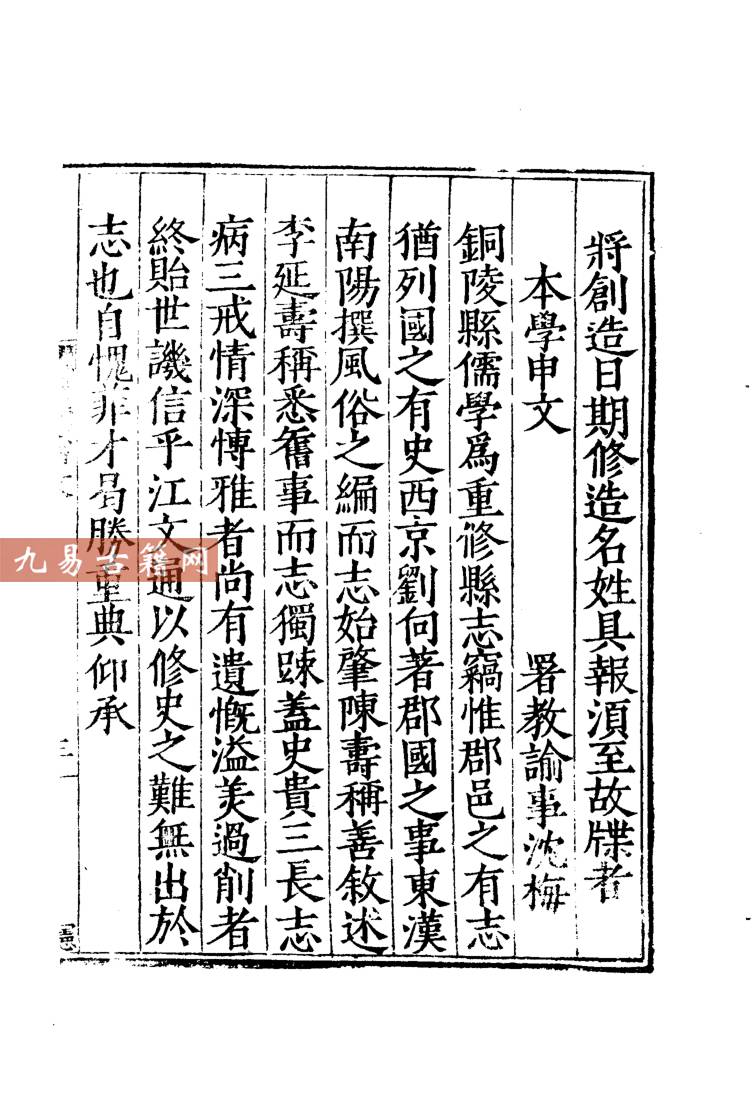 將創造日期修造名姓具報湏至故牒者
本學申文 署教諭事沈梅
銅陵縣儒學爲重修縣志竊惟郡邑之有志
猶列國之有史西京劉向著郡國之事東漢
南陽撰風俗之編而志始肇陳壽稱善敘述
李延壽稱悉舊事而志獨踈蓋史貴三長志
病三戒情深慱雅者尚有遺慨溢美過削者
終貽世譏信乎江文通以修史之難無出於
志也自愧非才曷勝重典仰承
九易古籍网